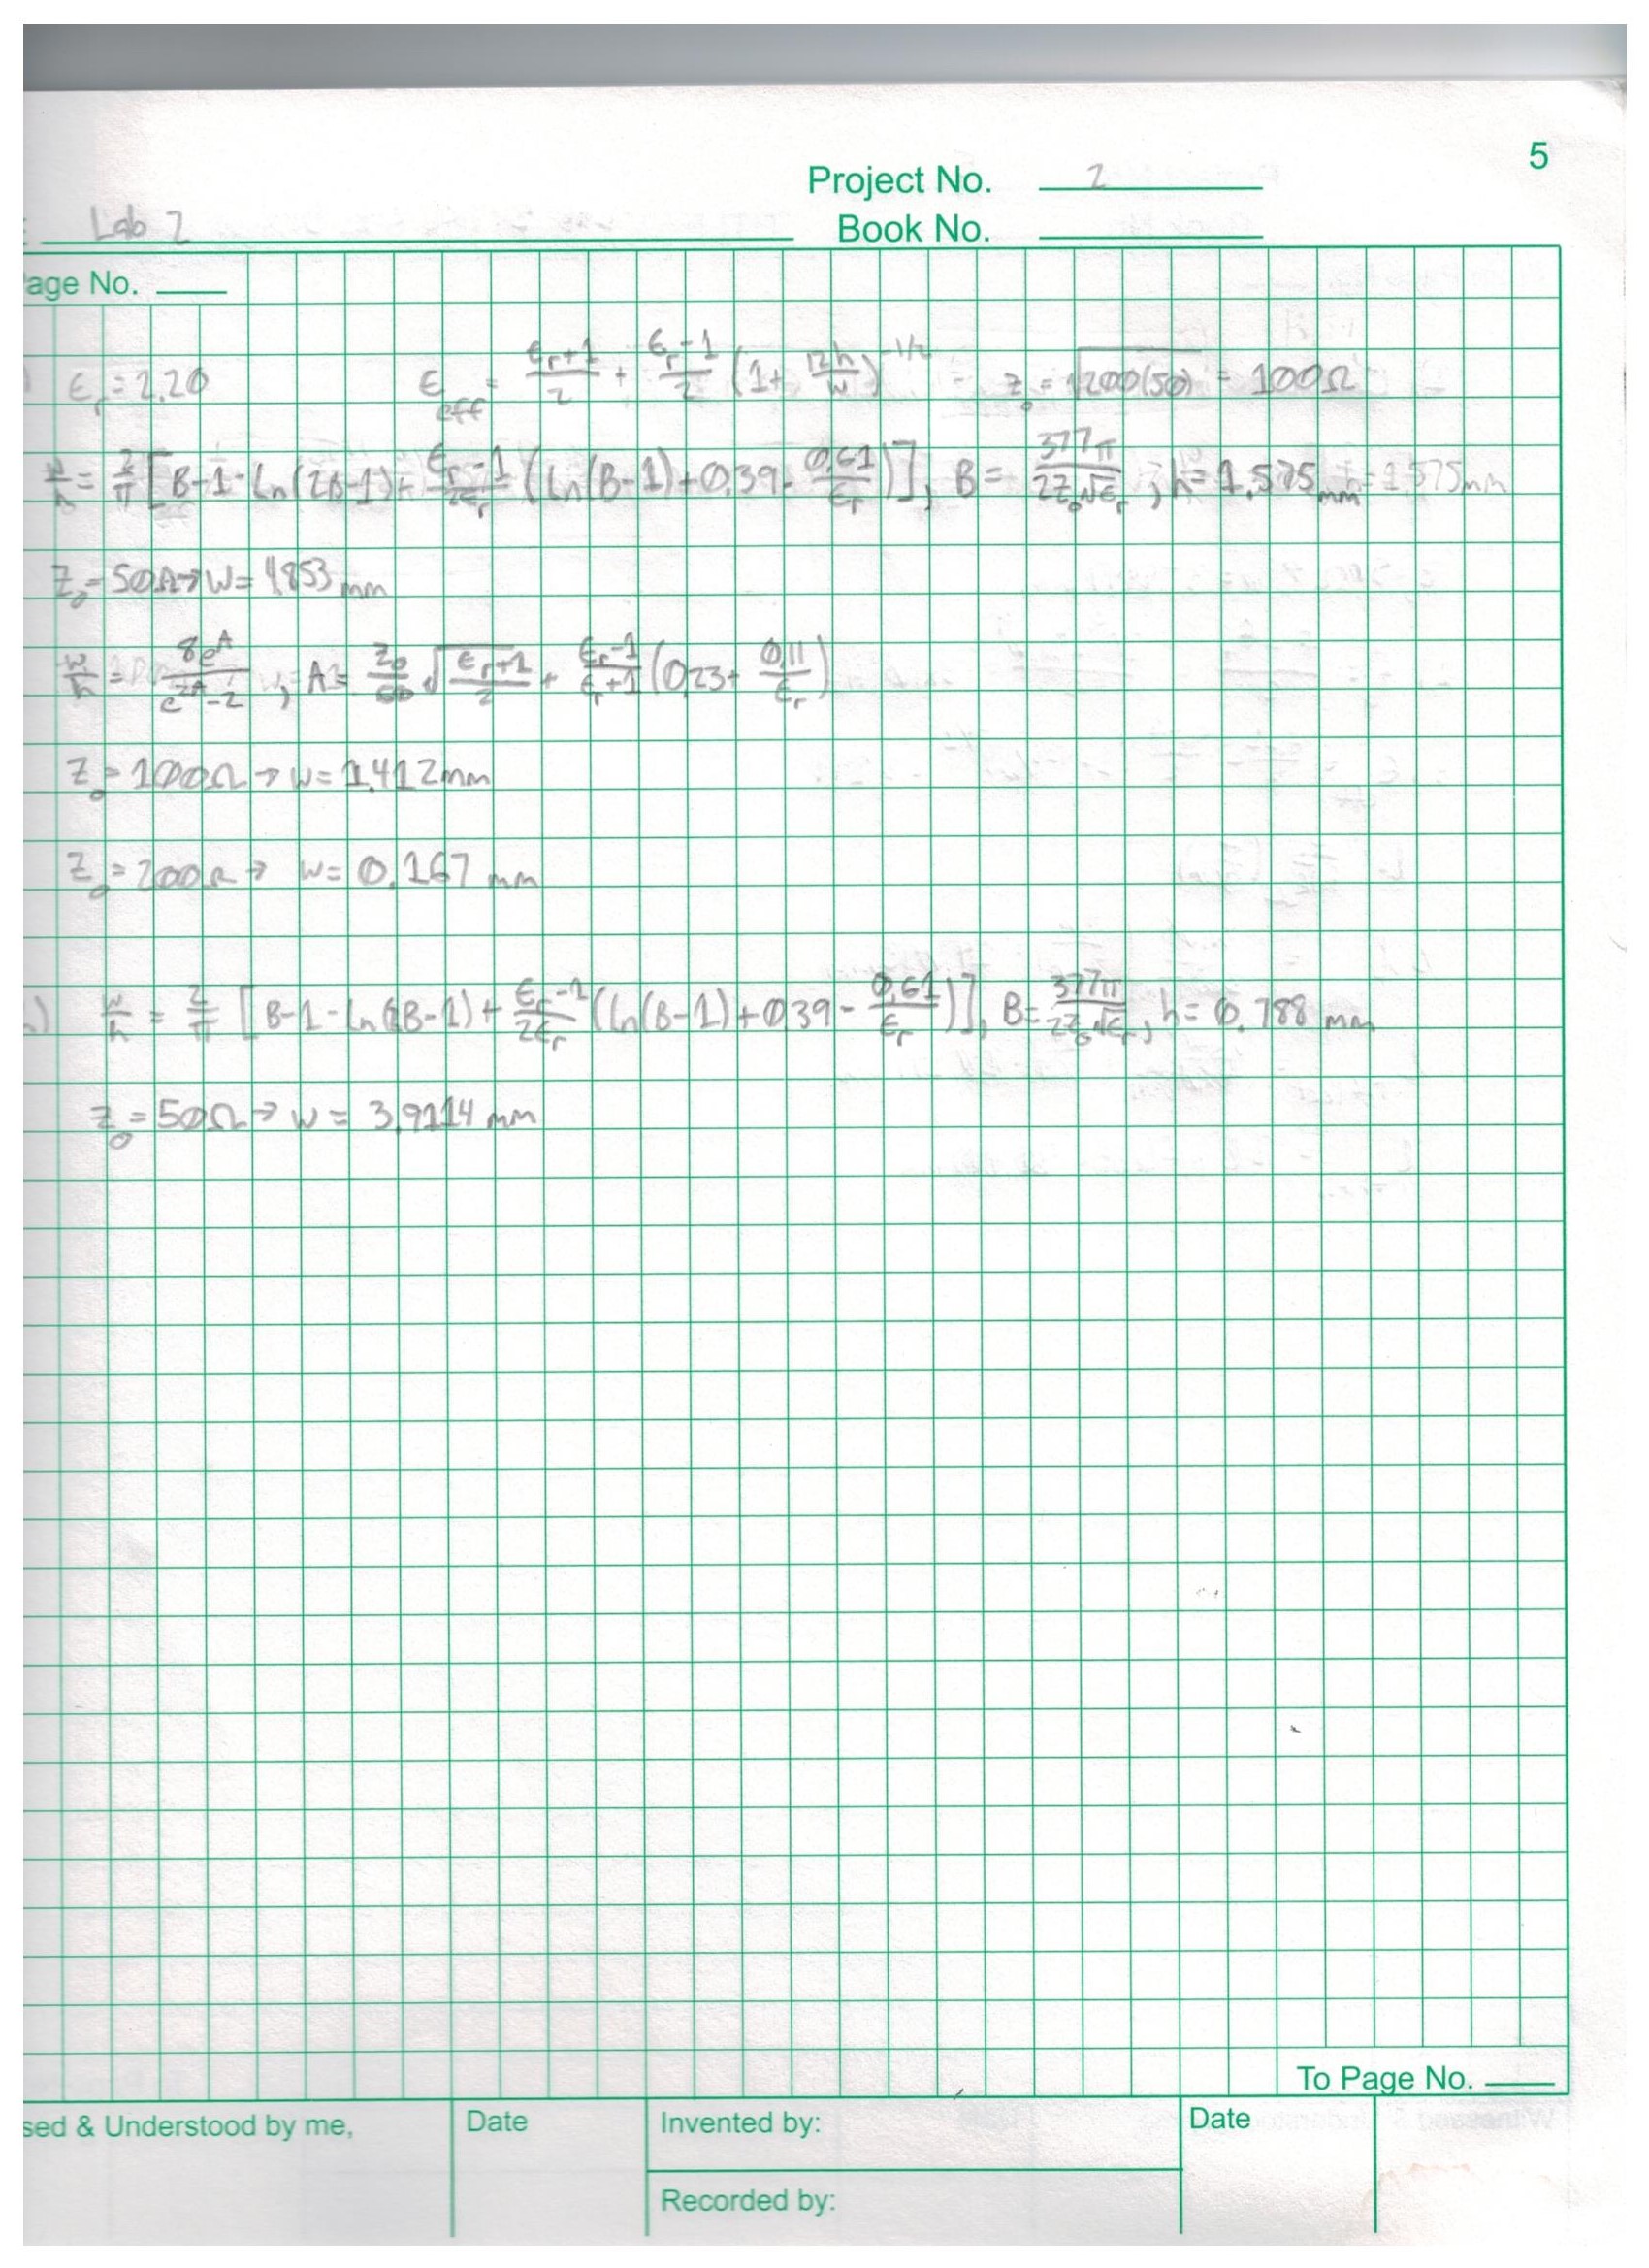 5
Project No. 2
Lab 2 Book No.
age No.
ϵr = 2.20 ϵeff = (ϵr+1)/2 + (ϵr-1)/2 (1+ 12h/w)^-1/2 Z0 = √200(50) = 100Ω
w/h = 2/π [B-1-Ln(2B-1)+ (ϵr-1)/2ϵr (Ln(B-1)+0.39- 0.61/ϵr)], B = 377π/2Z0√ϵr ; h= 1.575mm
Z0 = 50Ω → W= 4.853 mm
w/h = 8e^A/(e^2A -2) , A= Z0/60 √(ϵr+1)/2 + (ϵr-1)/(ϵr+1) (0.23+ 0.11/ϵr)
Z0 = 100Ω → w= 1.412mm
Z0 = 200Ω → w= 0.167 mm
) w/h = 2/π [B-1-Ln(2B-1)+ (ϵr-1)/2ϵr (Ln(B-1)+0.39- 0.61/ϵr)], B= 377π/2Z0√ϵr , h= 0.788 mm
Z0 = 50Ω → w = 3.9114 mm
To Page No.
sed & Understood by me, Date Invented by: Date
Recorded by: